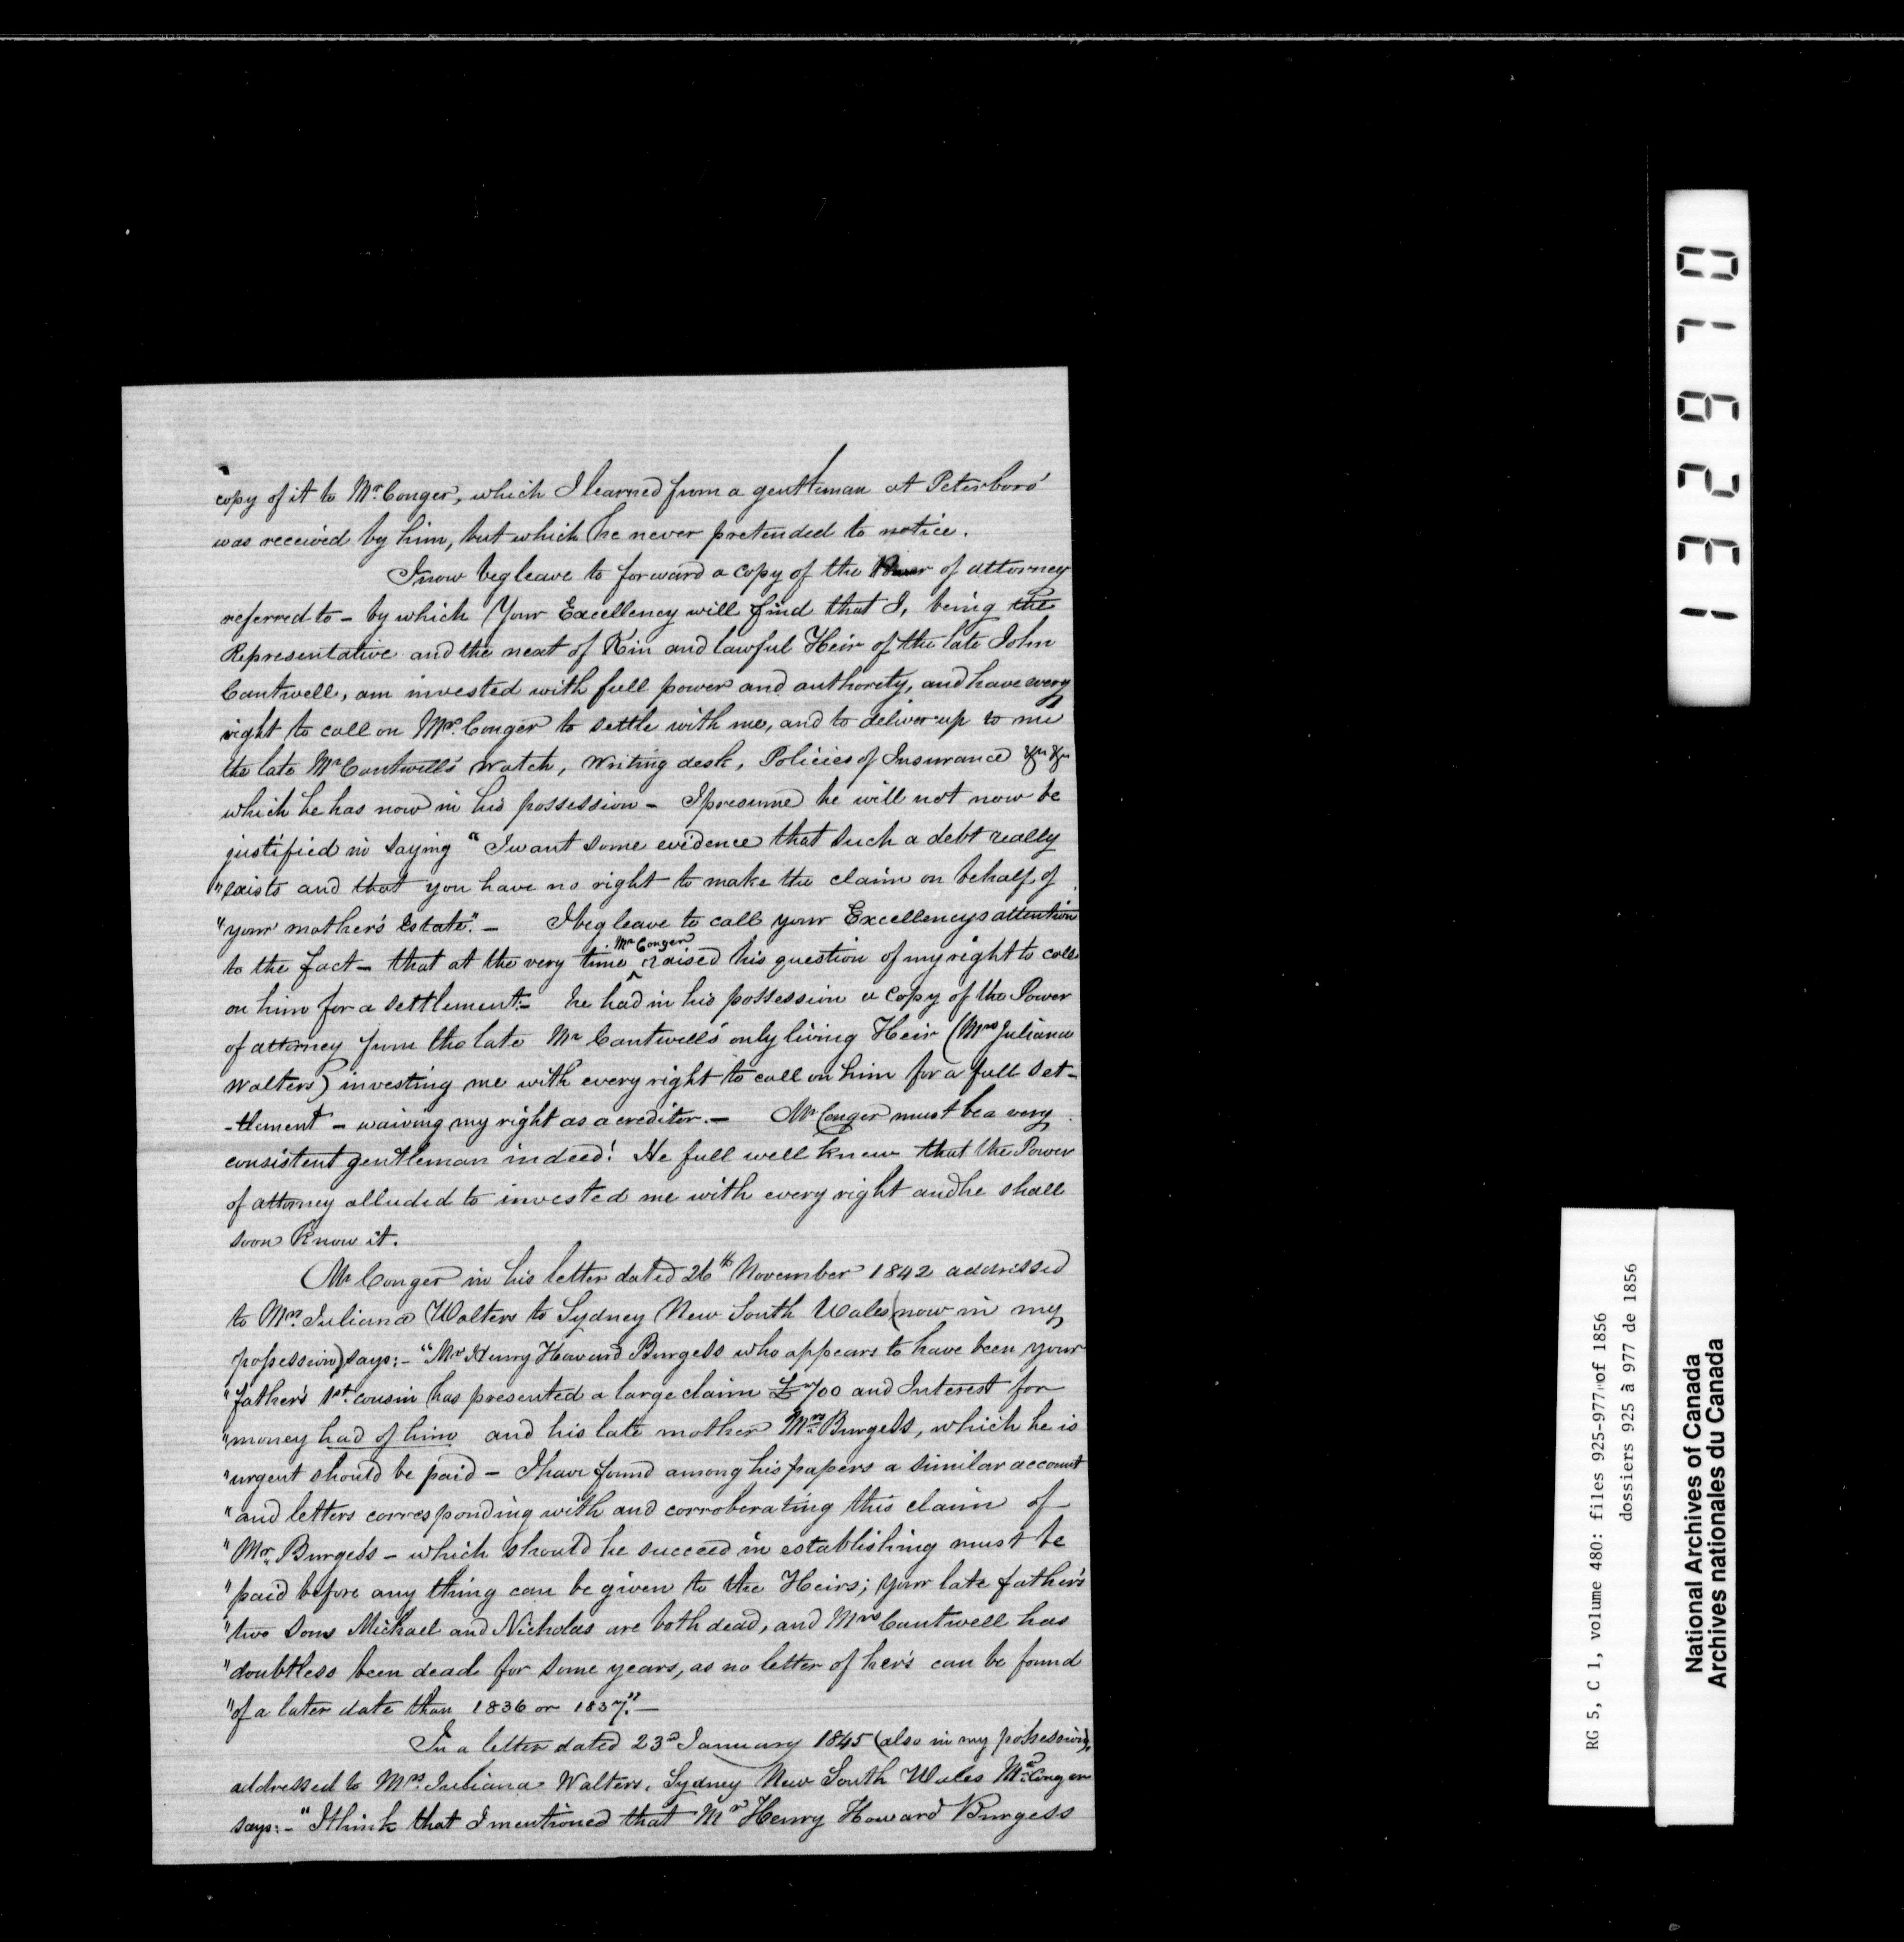 copy of it to Mr. Conger, which I learned from a gentleman at Peterboro'
was received by him, but which he never pretended to notice.
I now beg leave to forward a copy of the Power of attorney
referred to - by which Your Excellency will find that I, being the
Representative and the next of Kin and lawful Heir of the late John
Cantwell, am invested with full power and authority, and have every
right to call on Mr. Conger to settle with me, and to deliver up to me
the late Mr Cantwell's Watch, Writing desk, Policies of Insurance &c &c
which he has now in his possession - I presume he will not now be
justified in saying "I want some evidence that such a debt really
"exists and that you have no right to make the claim on behalf of
"your mother's Estate." - I beg leave to call your Excellencys attention
to the fact - that at the very time Mr Conger raised his question of my right to call
on him for a settlement:- he had in his possession a Copy of the Power
of attorney from the late Mr Cantwell's only living Heir (Mrs Juliana
Walters) investing me with every right to call on him for a full set-
-tlement - waiving my right as a creditor. - Mr Conger must be a very
consistent gentleman indeed! He full well knew that the Power
of attorney alluded to invested me with every right and he shall
soon Know it.
Mr Conger in his letter dated 26th November 1842 addressed
to Mrs. Juliana Walters to Sydney New South Wales (now in my
possession) says:- "Mr Henry Howard Burgess who appears to have been your
"father's 1st. cousin has presented a large claim £700 and Interest for
"money had of him and his late mother Mrs. Burgess, which he is
"urgent should be paid - I have found among his papers a similar account
"and letters corresponding with and corroberating this claim of
"Mr. Burgess - which should he succeed in establishing must be
"paid before any thing can be given to the Heirs; your late father's
"two sons Michael and Nicholas are both dead, and Mrs Cantwell has
"doubtless been dead for some years, as no letter of her's can be found
"of a later date than 1836 or 1837." -
In a letter dated 23d January 1845 (also in my possession),
addressed to Mrs. Juliana Walters, Sydney New South Wales Mr. Conger
says:- "I think that I mentioned that Mr Henry Howard Burgess
132970
RG 5, C 1, volume 480: files 925-977 of 1856
dossiers 925 à 977 de 1856
National Archives of Canada
Archives nationales du Canada